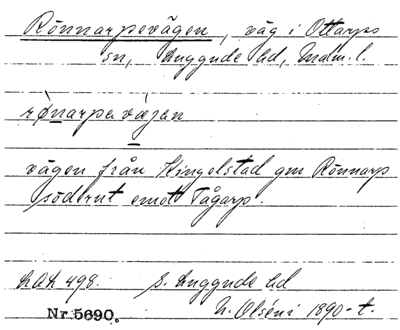 Rönnarpevägen, väg i Ottarps
sn, Luggude hd, Malm. l.
rønarpa vægan
vägen från Hingelstad gm Rönnarp
söderut emot Tågarp.
LAL 498. S. Luggude hd
N. Olséni 1890-t.
Nr. 5690.